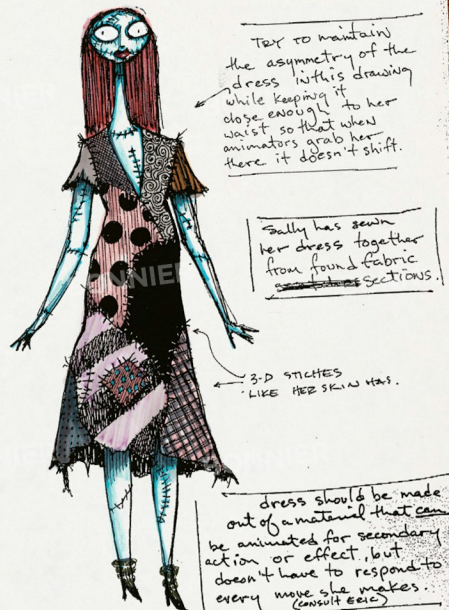 TRY TO maintain
the asymmetry of the
dress in this drawing
while keeping it
close enough to her
waist so that when
animators grab her
there it doesn't shift.
Sally has sewn
her dress together
from found fabric
sections.
3-D STICHES
LIKE HER SKIN HAS.
dress should be made
out of a material that can
be animated for secondary
action or effect, but
doesn't have to respond to
every move she makes.
(CONSULT ERIC)